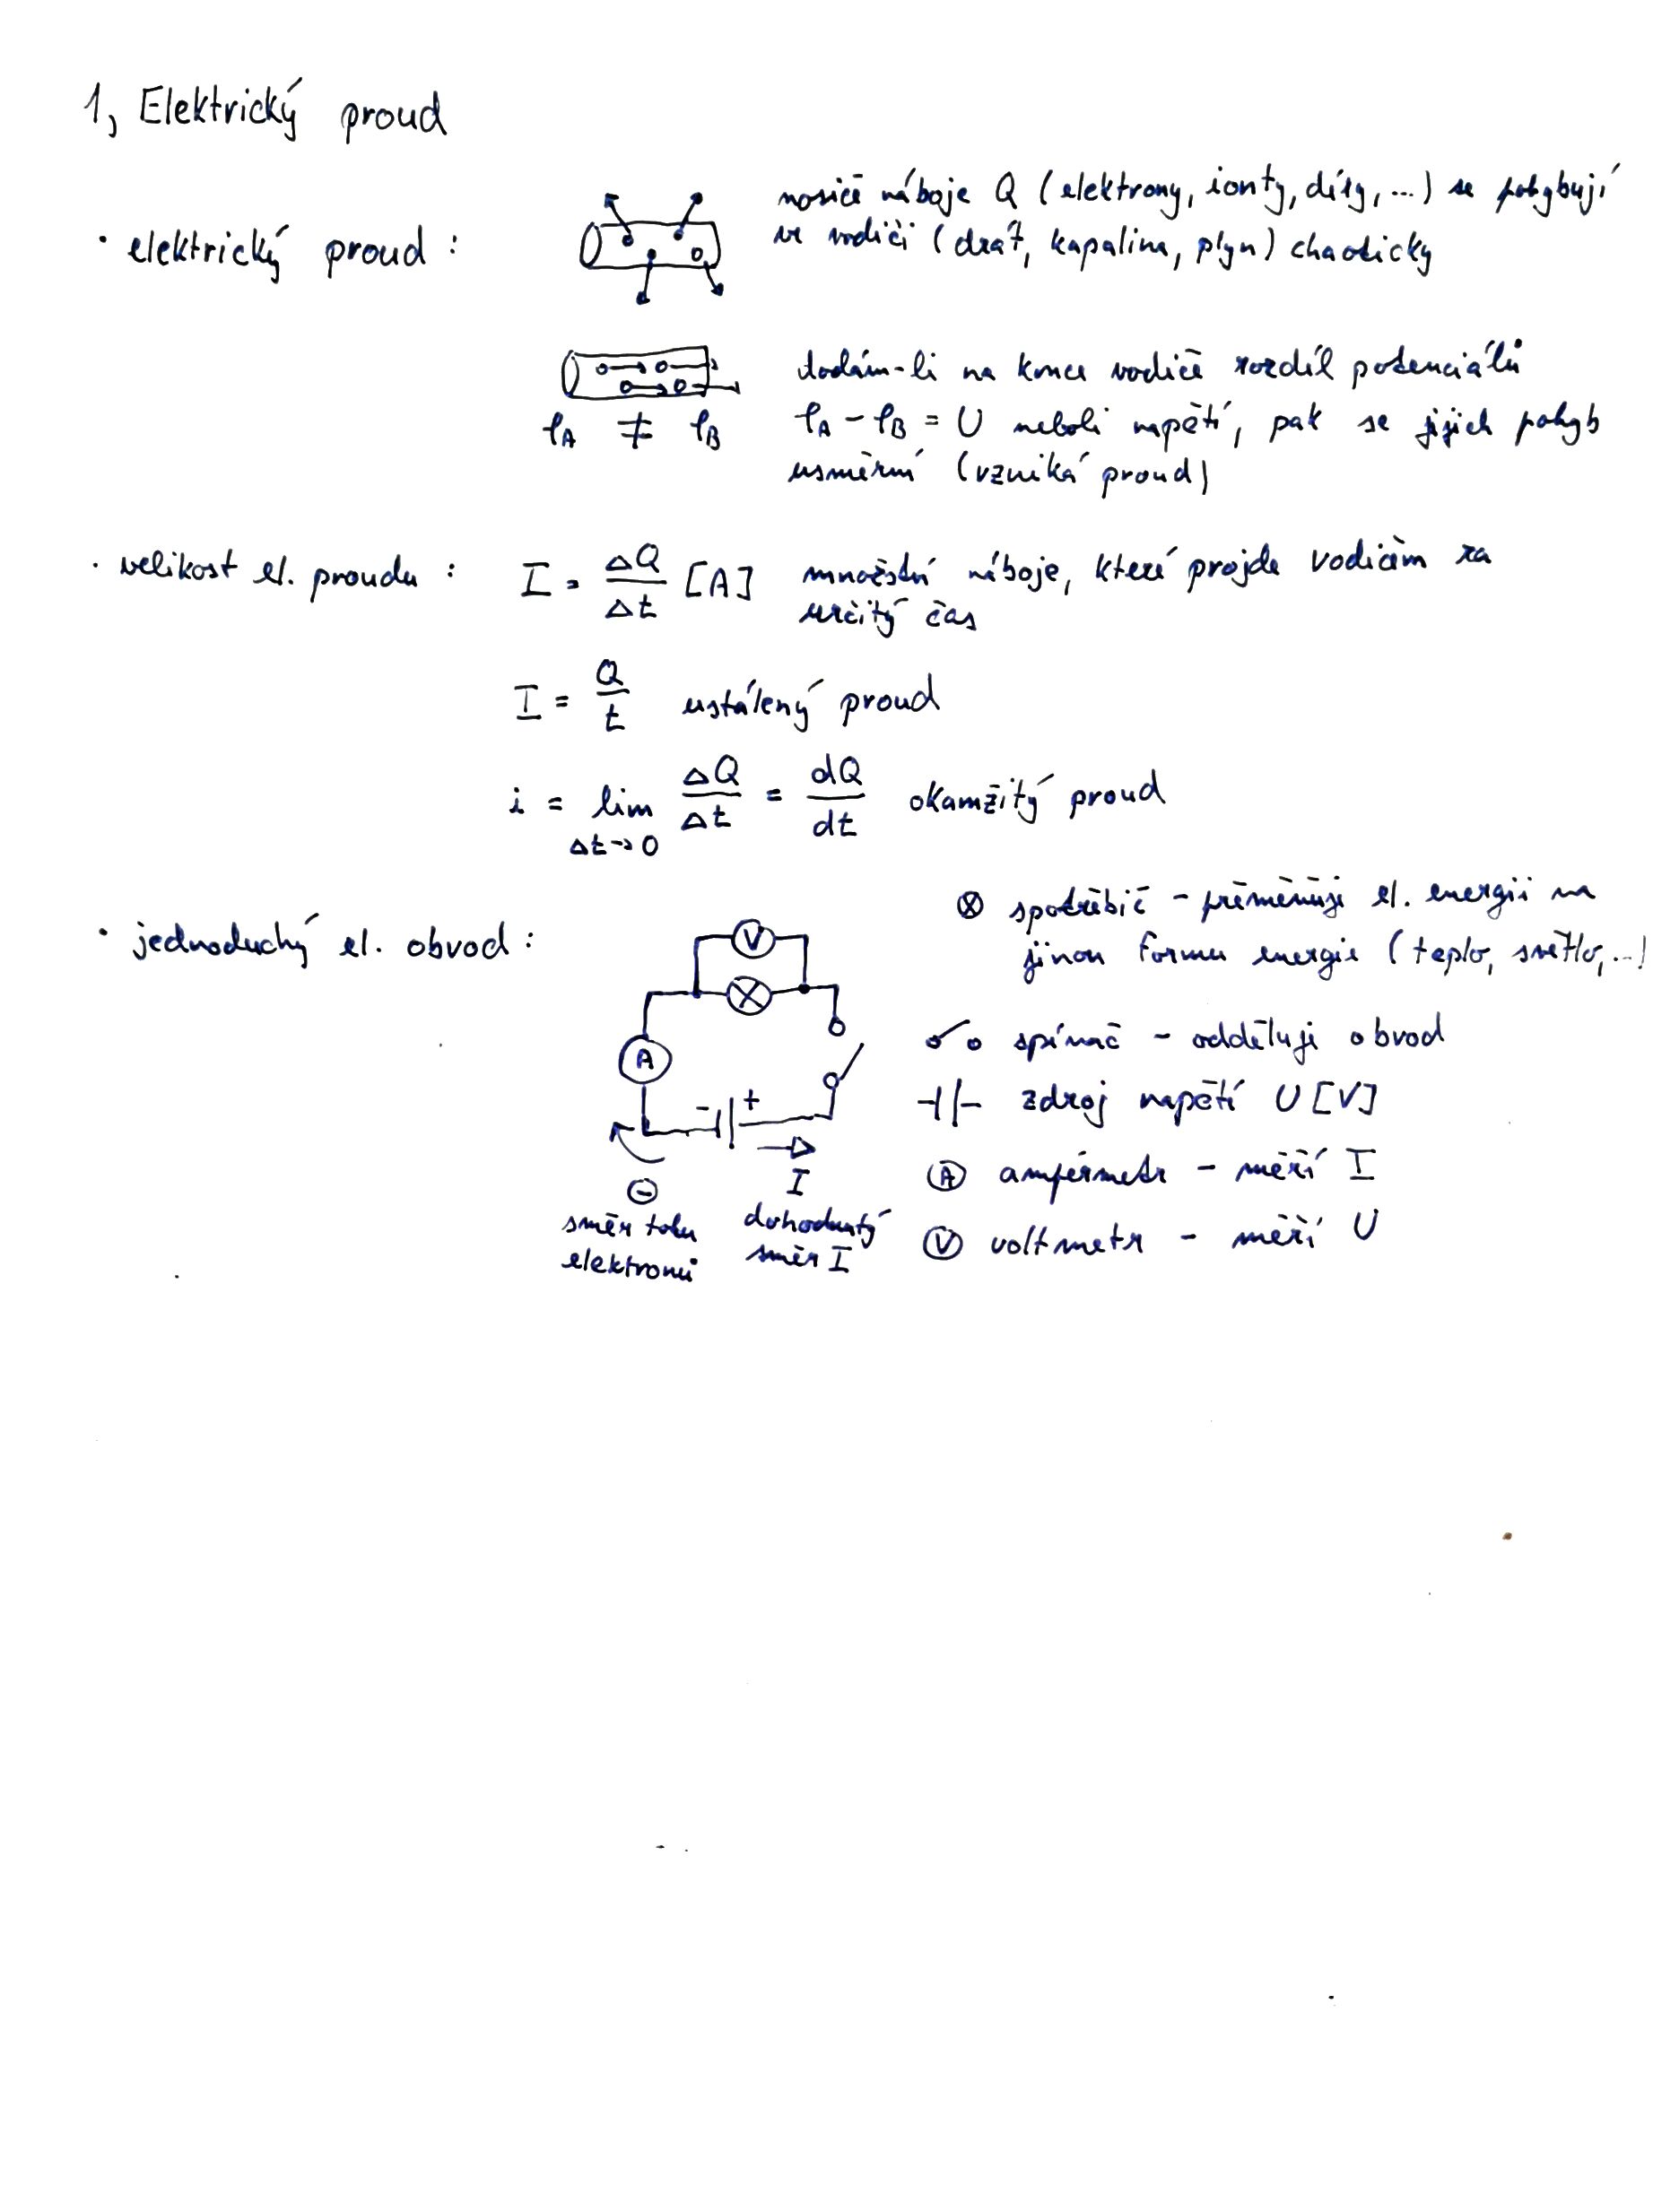 1, Elektrický proud
• elektrický proud :
nosiče náboje Q (elektrony, ionty, díry, ...) se pohybují
ve vodiči (drát, kapalina, plyn) chaoticky
dodám-li na konce vodiče rozdíl potenciálů
φA ≠ φB
φA - φB = U neboli napětí, pak se jejich pohyb
usměrní (vzniká proud)
• velikost el. proudu :
I = ΔQ/Δt [A] množství náboje, které projde vodičem za
určitý čas
I = Q/t ustálený proud
i = lim Δt→0 ΔQ/Δt = dQ/dt okamžitý proud
• jednoduchý el. obvod :
V
A
- +
I
⊖
směr toku
elektronů
dohodnutý
směr I
⊗ spotřebič - přeměňuje el. energii na
jinou formu energie (teplo, světlo,...)
spínač - odděluje obvod
zdroj napětí U [V]
A ampérmetr - měří I
V voltmetr - měří U